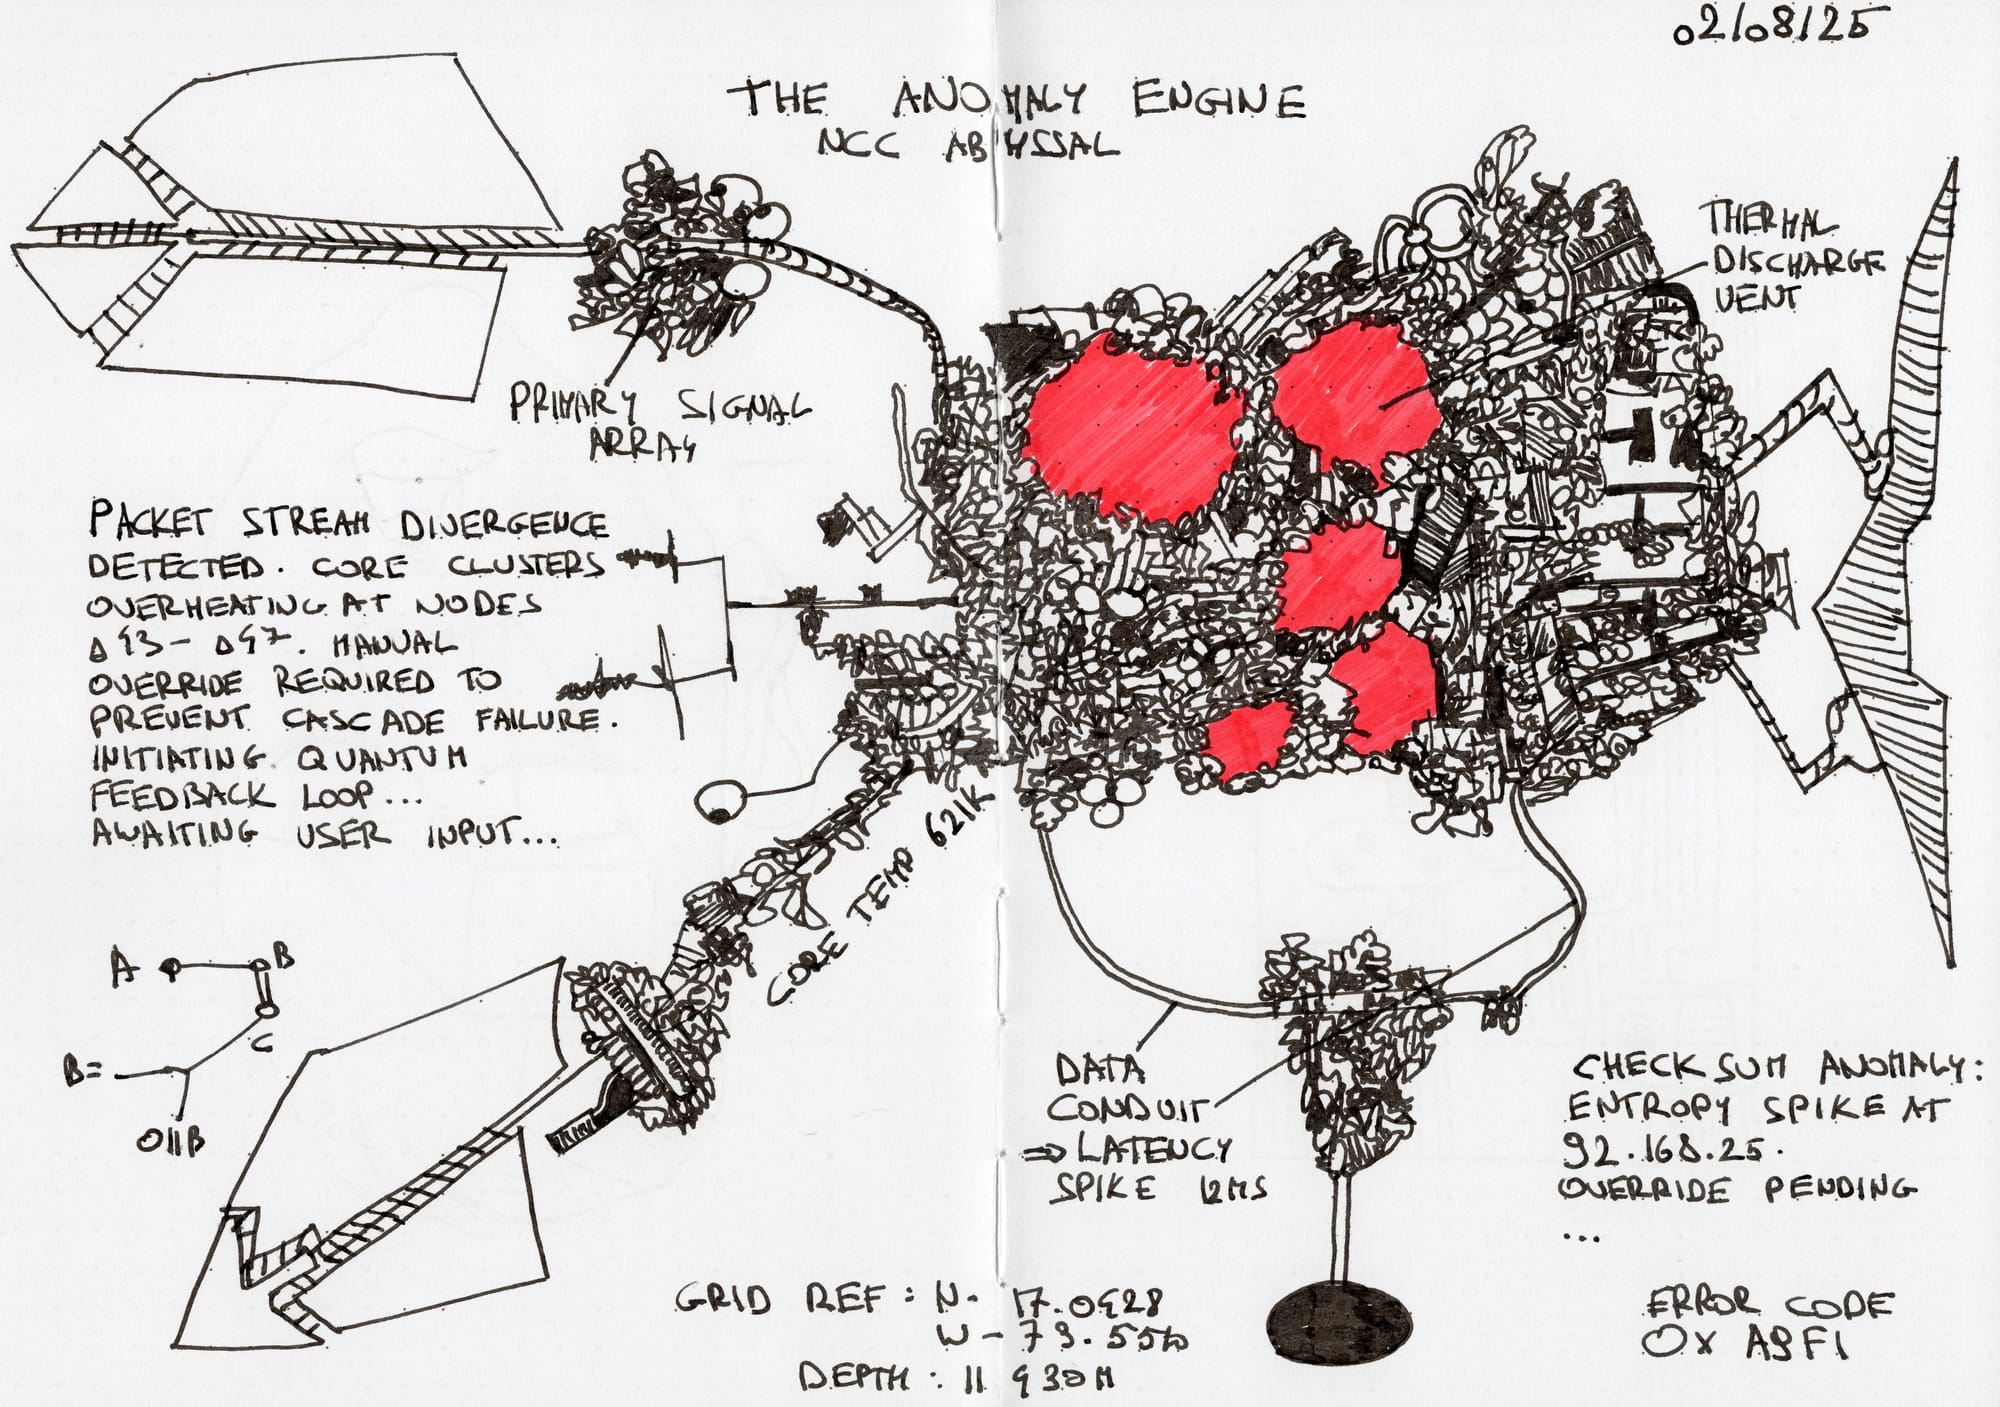 02/08/25
THE ANOMALY ENGINE
NCC ABYSSAL
THERMAL
DISCHARGE
VENT
PRIMARY SIGNAL
ARRAY
PACKET STREAM DIVERGENCE
DETECTED. CORE CLUSTERS
OVERHEATING AT NODES
Δ93-Δ97. MANUAL
OVERRIDE REQUIRED TO
PREVENT CASCADE FAILURE.
INITIATING QUANTUM
FEEDBACK LOOP...
AWAITING USER INPUT...
CORE TEMP 621K
A B
C
B=
O||B
DATA
CONDUIT
⇒ LATENCY
SPIKE 12MS
CHECKSUM ANOMALY:
ENTROPY SPIKE AT
92.168.25.
OVERRIDE PENDING
...
GRID REF: N- 17.0928
W-73.
DEPTH: 11 930M
ERROR CODE
0x A9F1